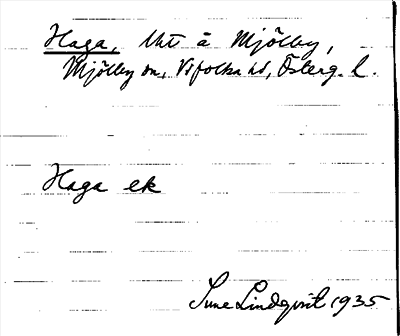 Haga, Utt å Mjölby,
Mjölby sn, Vifolka hd, Österg. l.
Haga ek
Sune Lindqvist 1935